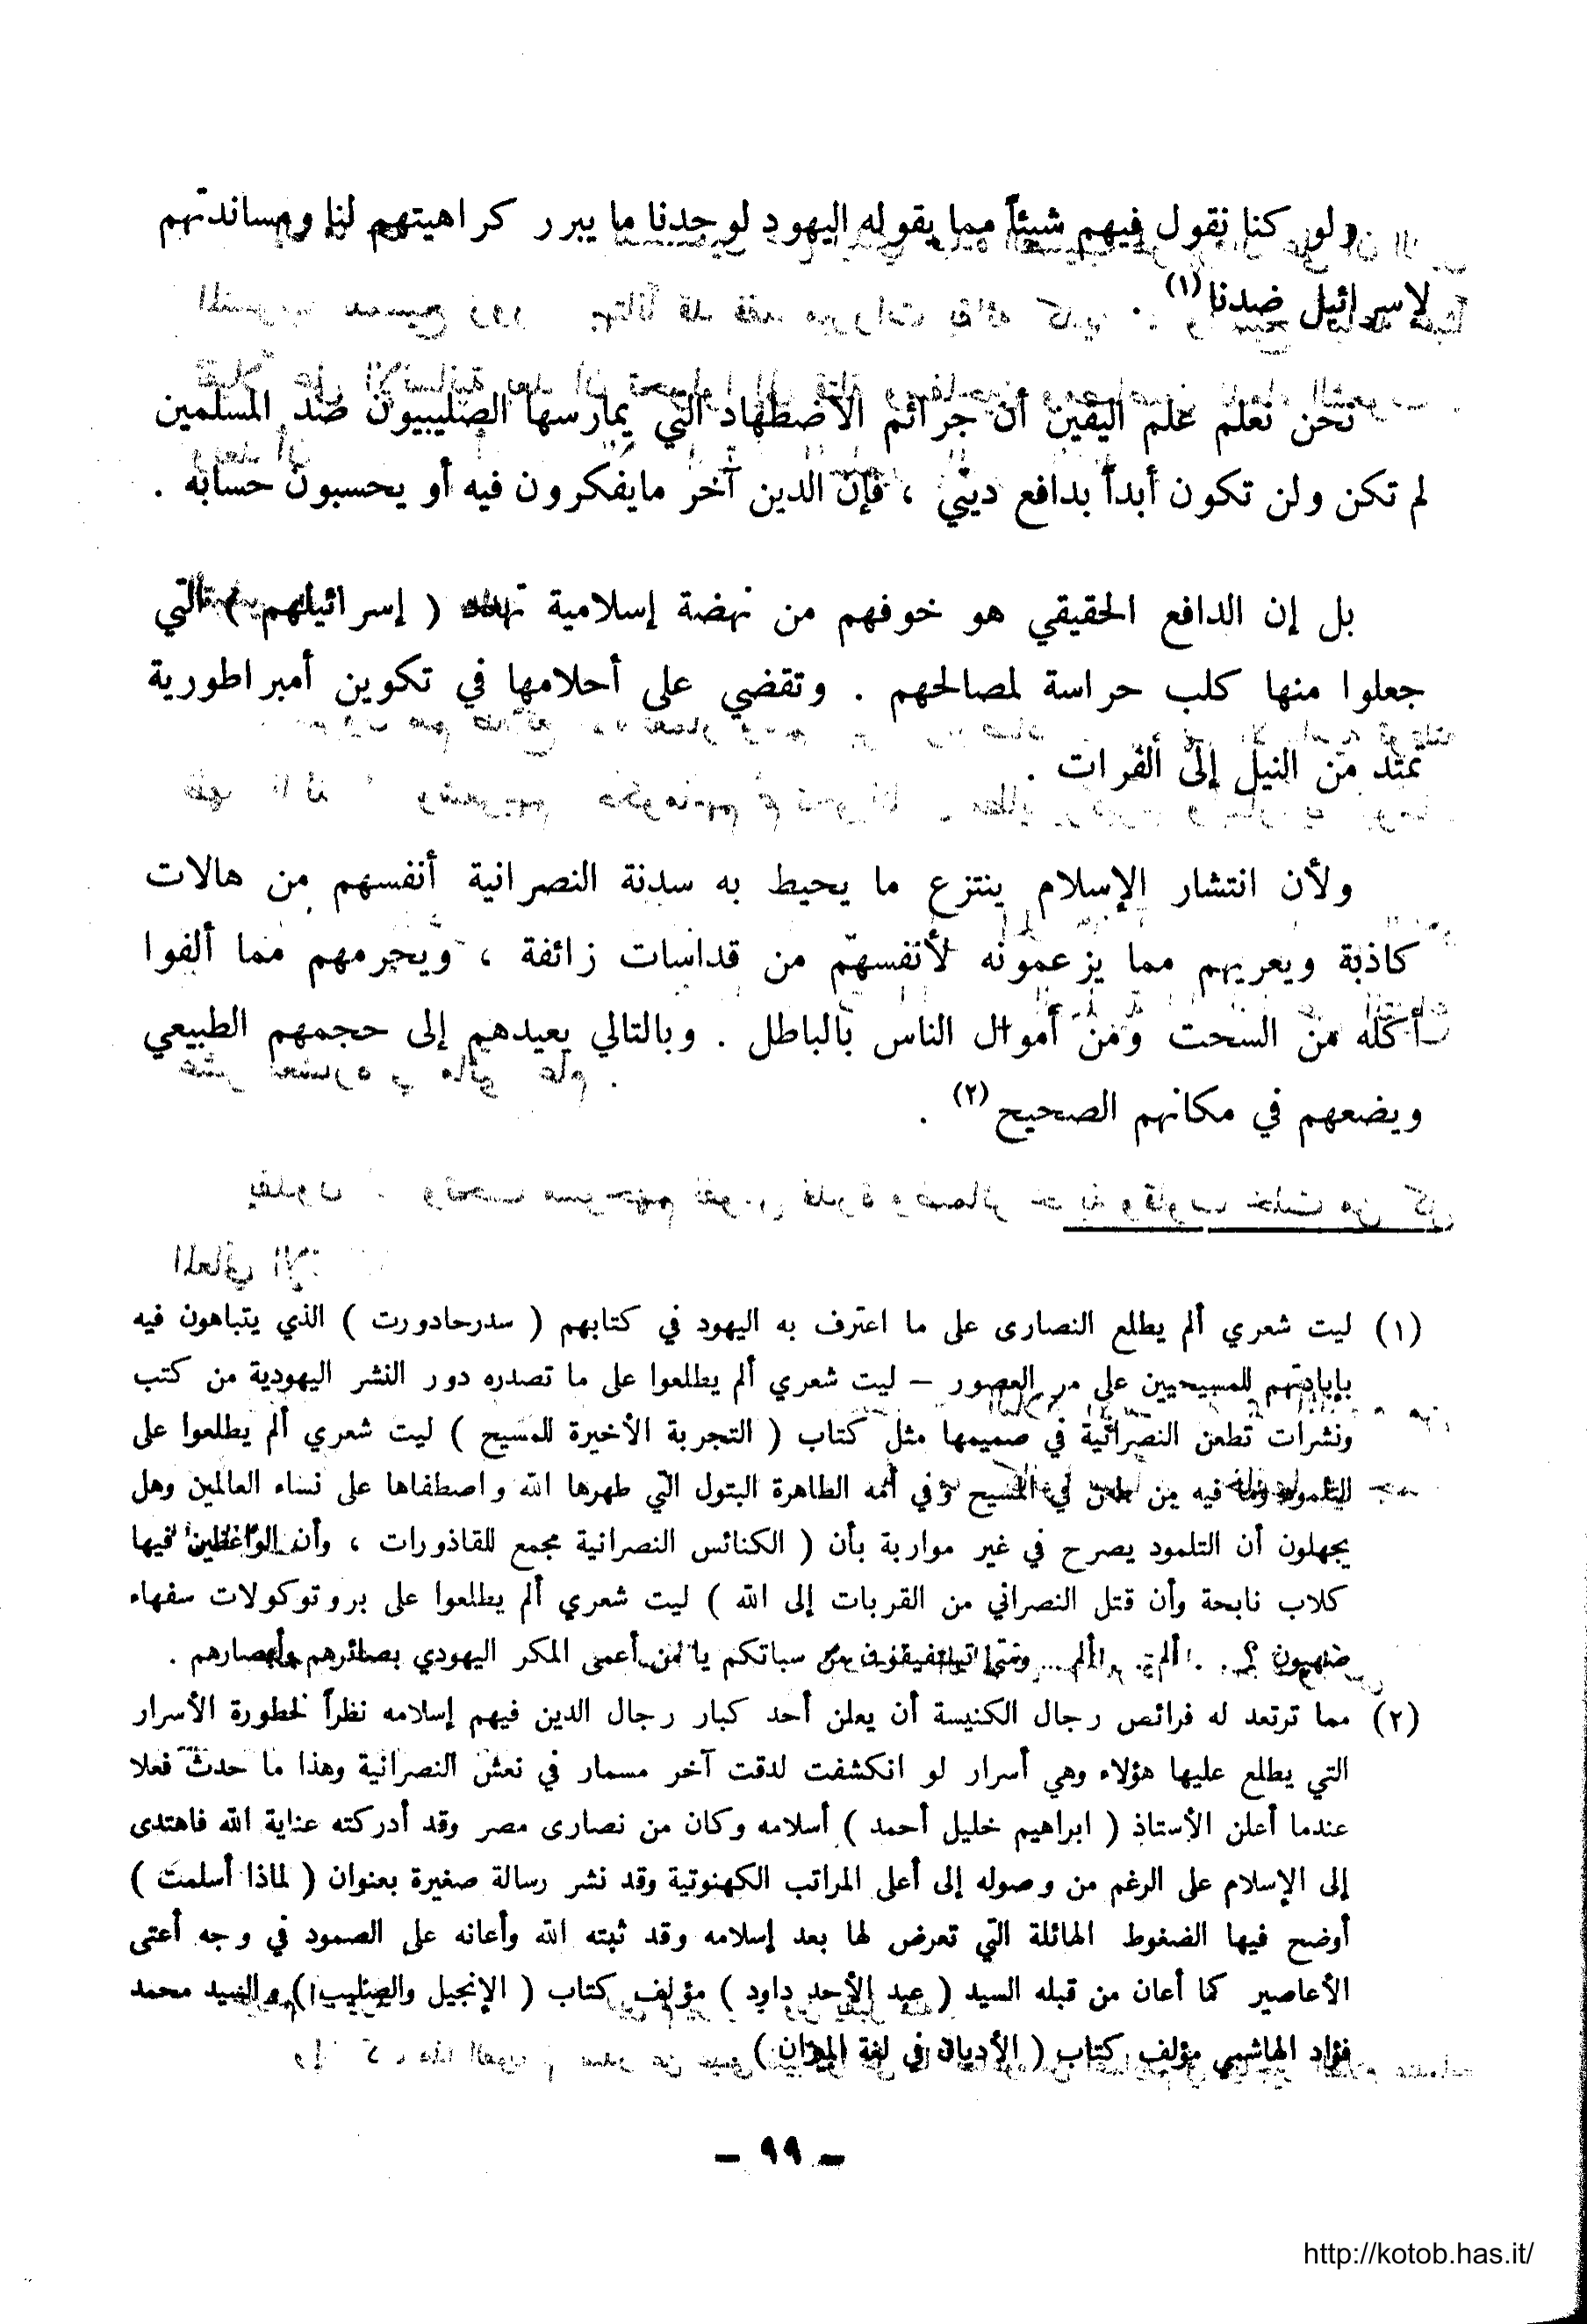 ولو كنا نقول فيهم شيئاً مما يقوله اليهود لوجدنا ما يبرر كراهيتهم لنا ومساندتهم
لاسرائيل ضدنا (١) .
نحن نعلم علم اليقين أن جرائم الاضطهاد التي يمارسها الصليبيون ضد المسلمين
لم تكن ولن تكون أبداً بدافع ديني ، فإن الدين آخر مايفكرون فيه أو يحسبون حسابه .
بل إن الدافع الحقيقي هو خوفهم من نهضة إسلامية تهدد ( إسرائيلهم ) التي
جعلوا منها كلب حراسة لمصالحهم . وتقضي على أحلامها في تكوين أمبراطورية
تمتد من النيل إلى الفرات .
ولأن انتشار الإسلام ينتزع ما يحيط به سدنة النصرانية أنفسهم من هالات
كاذبة ويعريهم مما يزعمونه لأنفسهم من قداسات زائفة ، ويحرمهم مما ألفوا
أكله من السحت ومن أموال الناس بالباطل . وبالتالي يعيدهم إلى حجمهم الطبيعي
ويضعهم في مكانهم الصحيح (٢) .
(١) ليت شعري ألم يطلع النصارى على ما اعترف به اليهود في كتابهم ( سدرحادورت ) الذي يتباهون فيه
بإبادتهم للمسيحيين على مر العصور – ليت شعري ألم يطلعوا على ما تصدره دور النشر اليهودية من كتب
ونشرات تطعن النصرانية في صميمها مثل كتاب ( التجربة الأخيرة للمسيح ) ليت شعري ألم يطلعوا على
التلمود وما فيه من طعن في المسيح وفي أمه الطاهرة البتول التي طهرها الله واصطفاها على نساء العالمين وهل
يجهلون أن التلمود يصرح في غير مواربة بأن ( الكنائس النصرانية مجمع للقاذورات ، وأن الواعظين فيها
كلاب نابحة وأن قتل النصراني من القربات إلى الله ) ليت شعري ألم يطلعوا على بروتوكولات سفهاء
صهيون ؟ .. ألم .. ألم ... ومتى تستفيقون من سباتكم يا من أعمى المكر اليهودي بصائرهم وأبصارهم .
(٢) مما ترتعد له فرائص رجال الكنيسة أن يعلن أحد كبار رجال الدين فيهم إسلامه نظراً لخطورة الأسرار
التي يطلع عليها هؤلاء وهي أسرار لو انكشفت لدقت آخر مسمار في نعش النصرانية وهذا ما حدث فعلا
عندما أعلن الأستاذ ( ابراهيم خليل أحمد ) أسلامه وكان من نصارى مصر وقد أدركته عناية الله فاهتدى
إلى الإسلام على الرغم من وصوله إلى أعلى المراتب الكهنوتية وقد نشر رسالة صغيرة بعنوان ( لماذا أسلمت )
أوضح فيها الضغوط الهائلة التي تعرض لها بعد إسلامه وقد ثبته الله وأعانه على الصمود في وجه أعتى
الأعاصير كما أعان من قبله السيد ( عبد الأحد داود ) مؤلف كتاب ( الإنجيل والصليب ) والسيد محمد
فؤاد الهاشمي مؤلف كتاب ( الأديان في لغة الميزان )
– ٩٩ –
http://kotob.has.it/